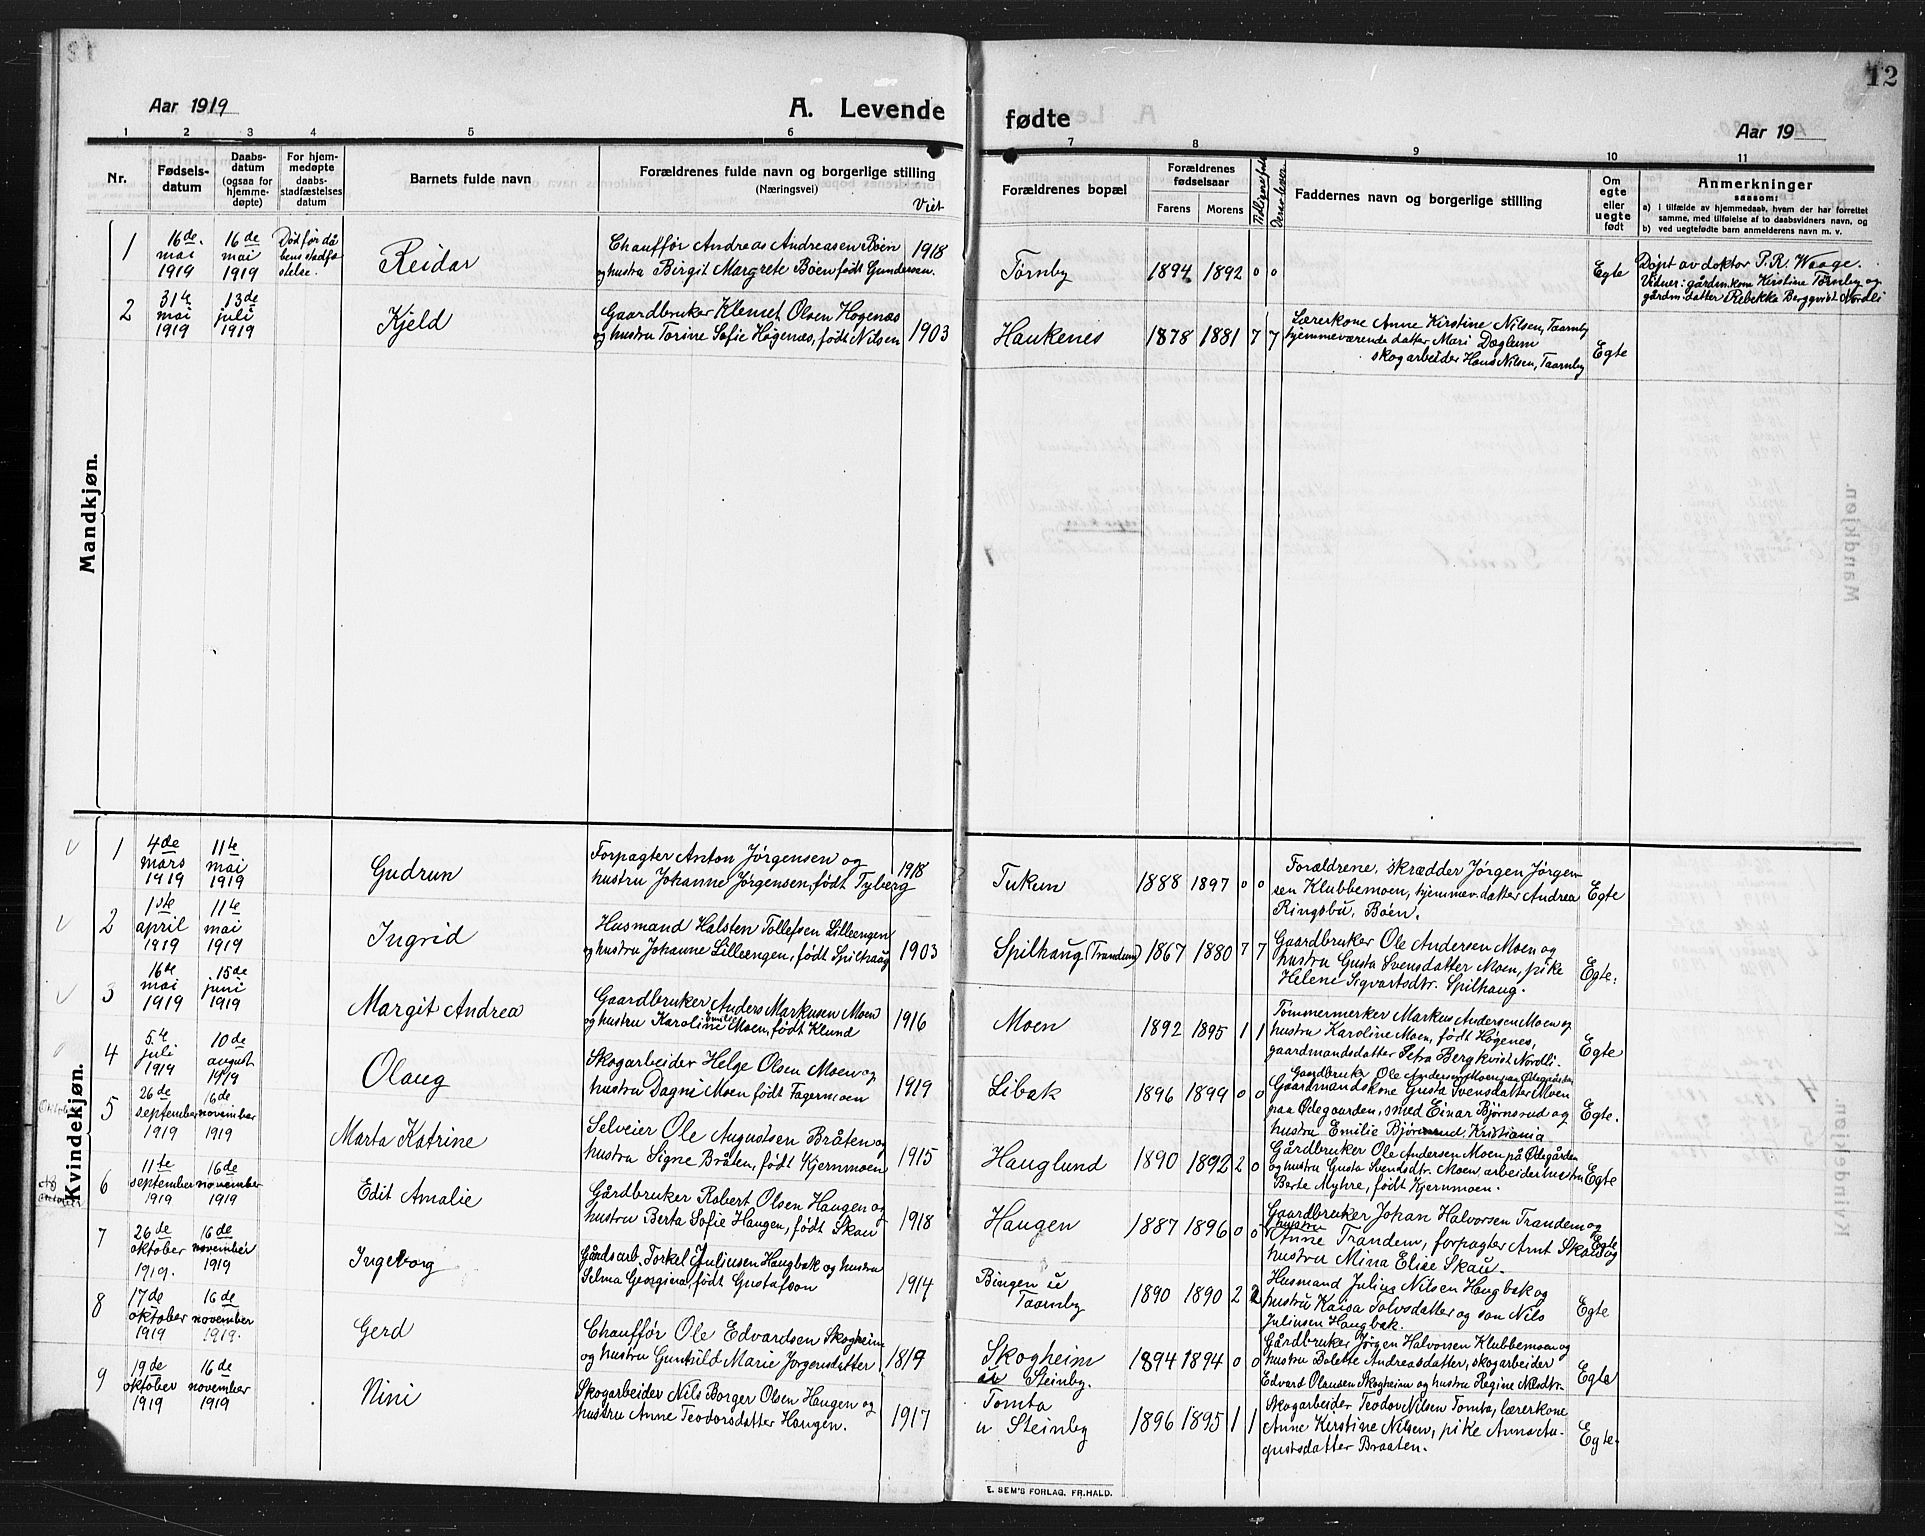 Aar 1919
A. Levende
fødte
Aar 19
12
1 2 3 4 5 6 7 8 9 10 11
Nr.
Fødsels-
datum
Daabs-
datum
(ogsaa for
hjemme-
døpte)
For hjem-
medøpte
daabs-
stadfæstelses
datum
Barnets fulde navn
Forældrenes fulde navn og borgerlige stilling
(Næringsvei)
Viet
Forældrenes bopæl
Forældrenes
fødselsaar
Farens Morens
Tidligere født
Derav lever
Faddernes navn og borgerlige stilling
Om
egte
eller
uegte
født
Anmerkninger
saasom:
a) i tilfælde av hjemmedaab, hvem der har forrettet
samme, med tilføielse af to daabsvidners navn, og
b) ved uegtefødte barn anmelderens navn m. v.
Mandkjøn.
1
16de
mai
1919
16de
mai
1919
Død før då
bens stadfæ
stelse.
Reidar
Chauffør Andreas Andreasen Bøen
og hustru Birgit Margrete Böen født Gundersen.
1918
Tørnby
1894 1892 0 0
Egte
Døpt av doktor P. R. Waage.
Vidner: gårdm.kone Kirstine Tørnby og
gårdm.datter Rebekka Bergqvist Nordli
2
31te
mai
1919
13de
juli
1919
Kjeld
Gaardbruker Klemet Olsen Høgenæs
og hustru Torine Sofie Høgenæs, født Nilsen
1903
Haukenes
1878 1881 7 7
Lærerkone Anne Kirstine Nilsen, Taarnby
hjemmeværende datter Mari Daglum
skogarbeider Hans Nilsen, Taarnby
Egte
Kvindekjøn.
1
4de
mars
1919
11te
mai
1919
Gudrun
Forpagter Anton Jørgensen og
hustru Johanne Jørgensen, født Tyberg
1918
Tukun
1888 1897 0 0
Forældrene, skrædder Jørgen Jørgen-
sen Klubbemoen, hjemmev. datter Andrea
Ringsbu, Böen.
Egte
2
1ste
april
1919
11te
mai
1919
Ingrid
Husmand Halsten Tollefsen Lilleengen
og hustru Johanne Lilleengen, født Spilhaug
1903
Spilhaug (Trandem)
1867 1880 7 7
Gaardbruker Ole Andersen Moen og
hustru Gusta Svensdatter Moen, pike
Helene Sigvartsdtr. Spilhaug.
Egte.
3
16de
mai
1919
15de
juni
1919
Margit Andrea
Gaardbruker Anders Markusen Moen
og hustru Karoline Emilie Moen, født Klund
1916
Moen
1892 1895 1 1
Tømmermerker Markus Andersen Moen og
hustru Karoline Moen, født Høgenes,
gaardmandsdatter Petra Bergkvist Nordli.
Egte
4
5te
juli
1919
10de
august
1919
Olaug
Skogarbeider Helge Olsen Moen og
hustru Dagni Moen født Fagermoen
1919
Libak
1896 1899 0 0
Gaardbruker Ole Andersen Moen paa Ødegaarden
Gaardmandskone Gusta Svensdatter Moen
paa Ødegaarden, smed Einar Bjørnsrud og
hustru Emilie Bjørnsrud, Kristiania
Egte.
5
26de
september
1919
16de
november
1919
Marta Katrine
Selveier Ole Augustsen Bråten og
hustru Signe Bråten, født Kjernmoen
1915
Hauglund
1890 1892 2 0
Gårdbruker Ole Andersen Moen på Ødegården
og hustru Gusta Svendsdtr. Moen, arbeiderhustru
Berte Myhre, født Kjernmoen.
Egte
6
11te
september
1919
16de
november
1919
Edit Amalie
Gårdbruker Robert Olsen Haugen og
hustru Berta Sofie Haugen, født Skau
1918
Haugen
1887 1896 0 0
Gaardbruker Johan Halvorsen Trandem og
hustru
Anne Trandem, forpagter Arnt Skau og
hustru Mina Elise Skau.
Egte
7
26de
oktober
1919.
16de
november
1919
Ingeborg
Gårdsarb. Torkel Juliusen Haugbak og hustru
Selma Georgina, født Gustafson
1914
Bingen u
Taarnby
1890 1890 2 2
Husmand Julius Nilsen Haugbak og
hustru Kaisa Tolvsdatter og søn Nils
Juliusen Haugbak.
Egte
8
17de
oktober
1919
16de
november
1919.
Gerd
Chauffør Ole Edvardsen Skogheim
og hustru Gunhild Marie Jørgensdatter,
1819
Skogheim
u Steinby.
1894 1894 0 0
Gårdbruker Jørgen Halvorsen Klubbemoen og
hustru Bolette Andreasdatter, skogarbeider
Edvard Olausen Skogheim og hustru Regine Nilsdtr.
Egte
9
19de
oktober
1919
16de
november
1919
Nini
Skogarbeider Nils Borger Olsen Haugen og
hustru Anne Teodorsdatter Haugen.
1917
Tomta
u Steinby
1896 1895 1 1
Skogarbeider Teodor Nilsen Tomta, lærerkone
Anne Kirstine Nilsen, pike Anna Au-
gustsdatter Braaten.
Egte.
E. SEM'S FORLAG. FR.HALD.